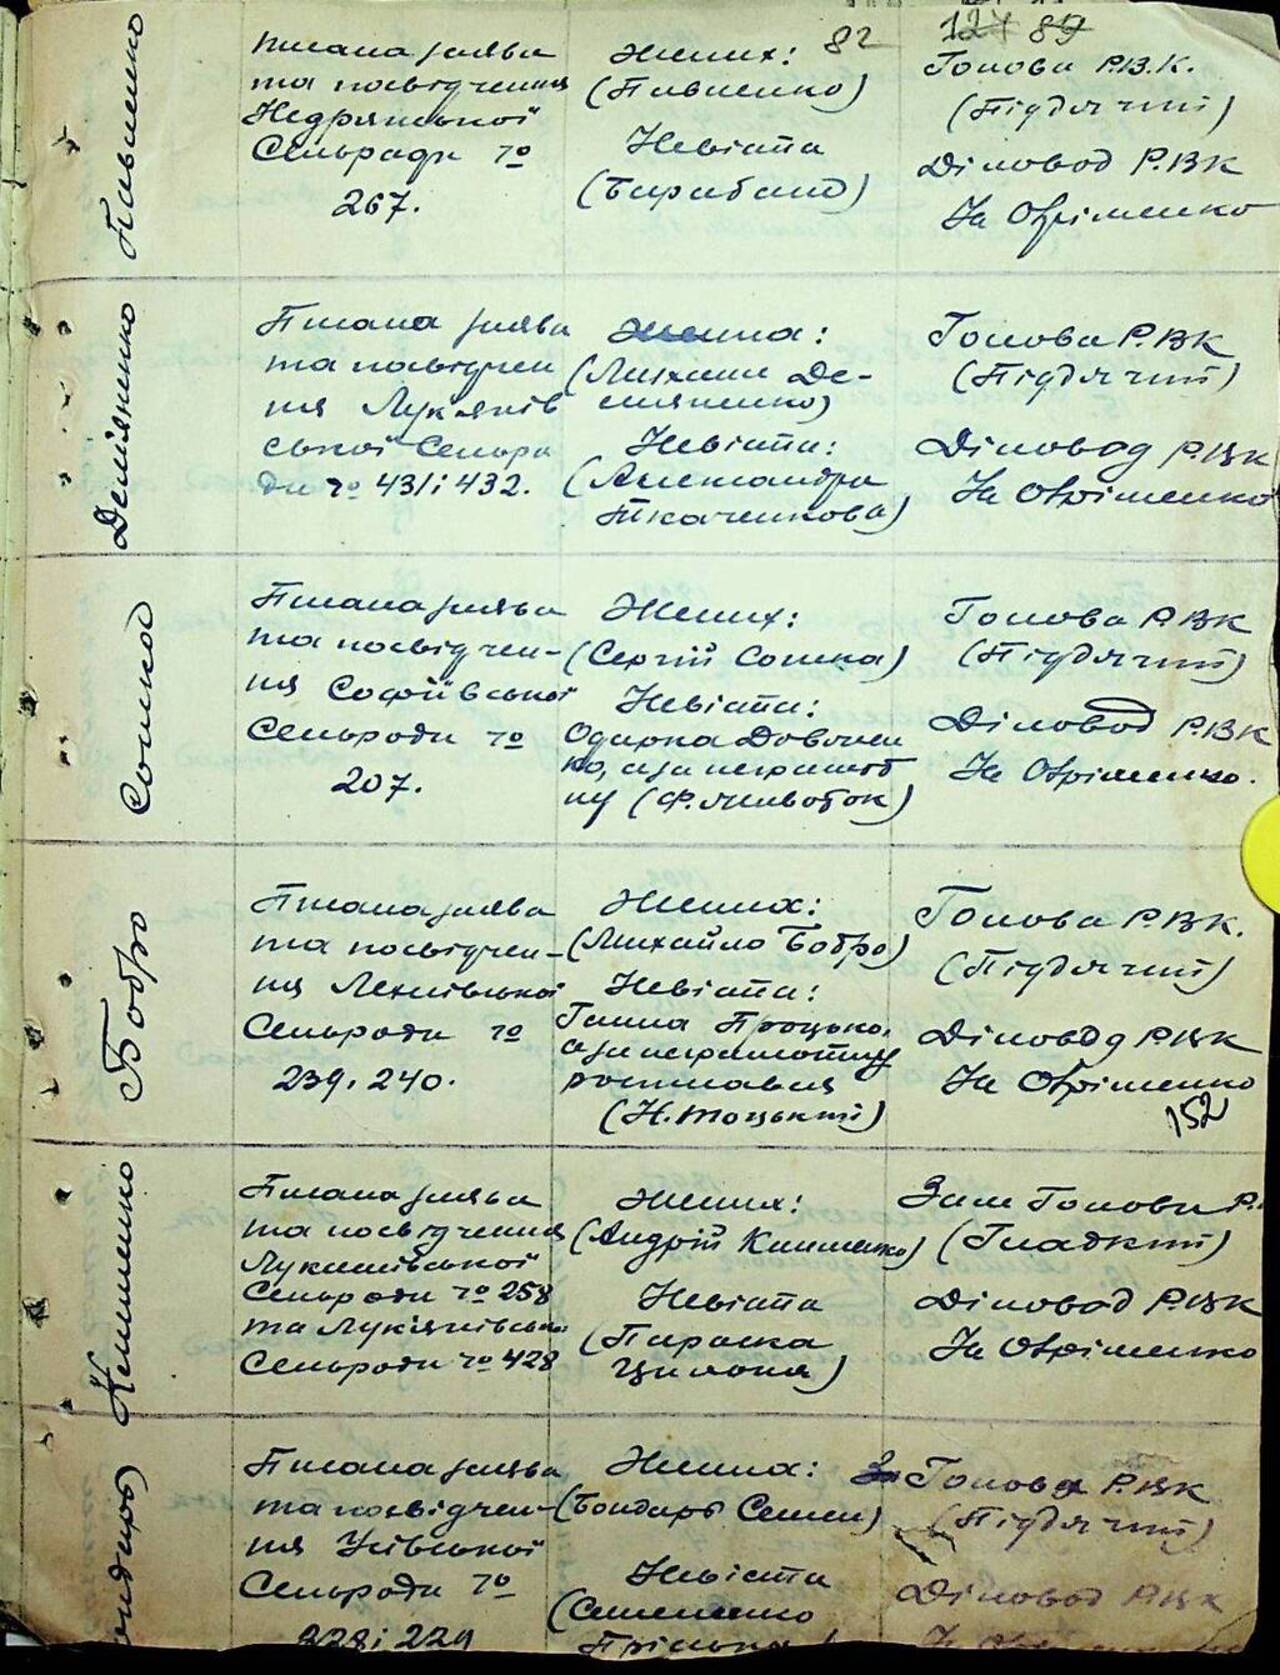 82
124 89
Павленко
Писана заява
та посвідчення
Недрянської
Сельради №
267.
Жених:
(Павленко)
Невіста
(Барабаш)
Голова Р.В.К.
(Підлячий)
Діловод Р.ВК
За Охріменко
Демяненко
Писана заява
та посвідчен
ня Лукянів
ської Сельра
ди № 431 і 432.
Жениха:
(Михаил Де-
мяненко)
Невіста:
(Александра
Ткаченкова)
Голова Р.ВК
(Підлячий)
Діловод Р.ВК
За Охріменко
Писана заява
та посвідчен-
ня Софіївської
Сельради №
207.
Жених:
(Сергій Сошка)
Невіста:
Одарка Довжен
ко, а за неграмот
ну
Голова Р.ВК
(Підлячий)
Діловод Р.ВК
За Охріменко.
Бобро
Писана заява
та посвідчен-
ня
Сельради №
239, 240.
Жених:
(Михайло Бобро)
Невіста:
Ганна Процько,
а за неграмотну
росписався
(Н. Тоцький)
Голова Р.ВК.
(Підлячий)
Діловод Р.ВК
За Охріменко
152
Клименко
Писана заява
та посвідчення
Лукашівської
Сельради № 258
та Лукянівсько
Сельради № 428
Жених:
(Андрій Клименко)
Невіста
(Параска
Голови Р.
(Гладкий)
Діловод Р.ВК
За Охріменко
Писана заява
та посвідчен-
ня
Сельради №
228 і 229
Жених:
(Бондарь Семен)
Невіста
(Семененко
Голова Р.ВК
(Підлячий)
Діловод Р.ВК